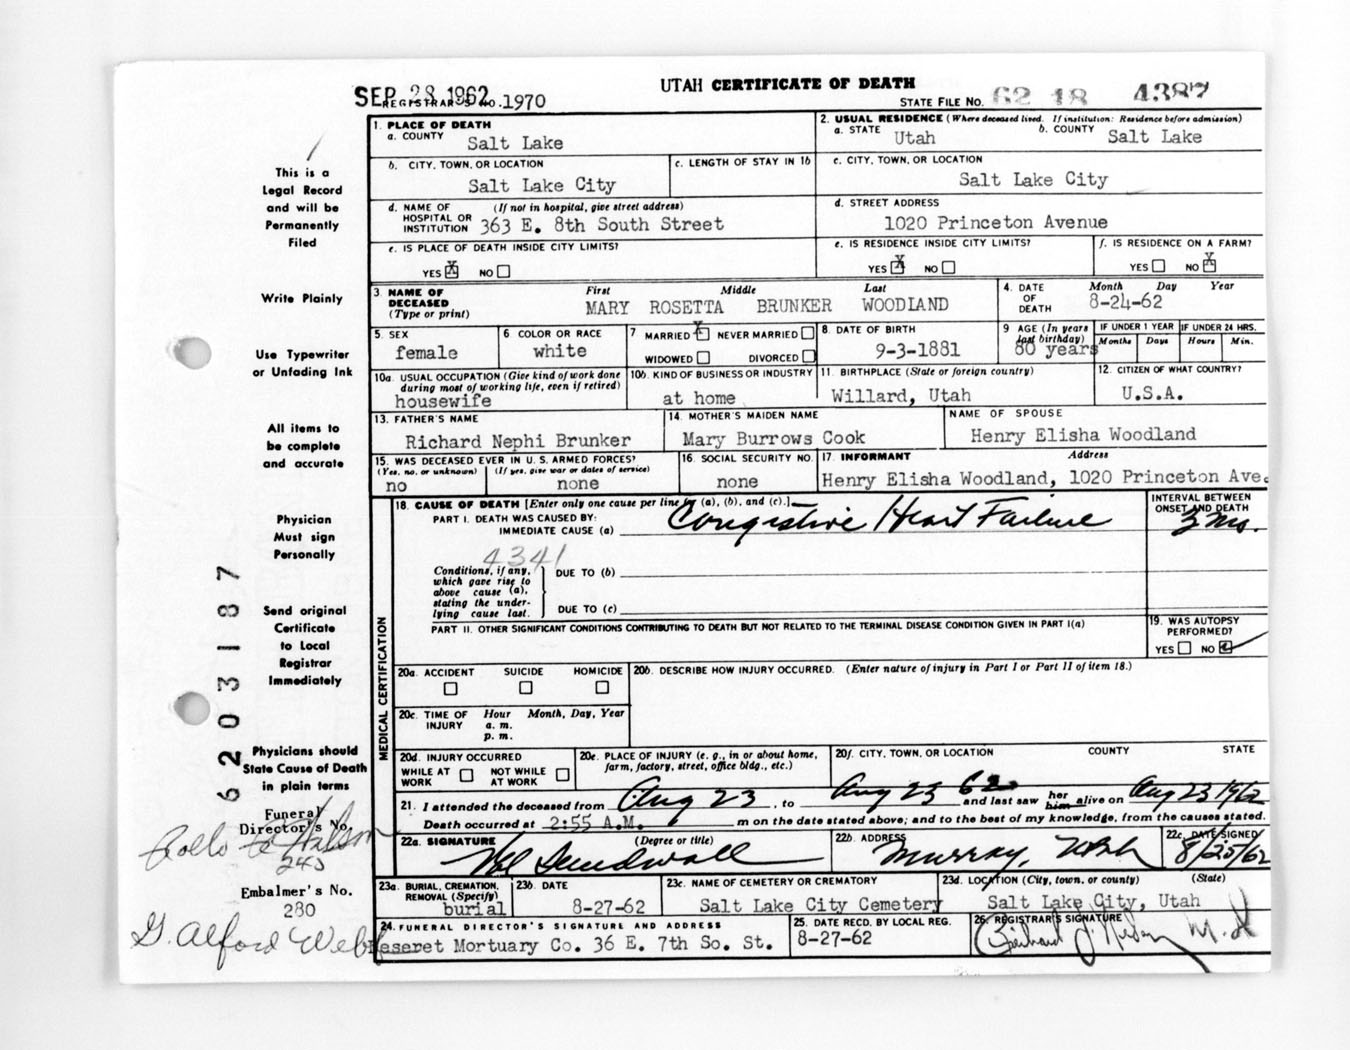 UTAH CERTIFICATE OF DEATH
SEP 28 1962
REGISTRAR'S NO. 1970
STATE FILE NO. 62 18 4387
This is a
Legal Record
and will be
Permanently
Filed
Write Plainly
Use Typewriter
or Unfading Ink
All items to
be complete
and accurate
Physician
Must sign
Personally
Send original
Certificate
to Local
Registrar
Immediately
Physicians should
State Cause of Death
in plain terms
Funeral
Director's No.
Rollo Wilson
243
Embalmer's No.
280
G. Alford Webb
6203187
1. PLACE OF DEATH
a. COUNTY Salt Lake
2. USUAL RESIDENCE (Where deceased lived. If institution: Residence before admission)
a. STATE Utah b. COUNTY Salt Lake
b. CITY, TOWN, OR LOCATION Salt Lake City
c. LENGTH OF STAY IN 1b
c. CITY, TOWN, OR LOCATION Salt Lake City
d. NAME OF HOSPITAL OR INSTITUTION (If not in hospital, give street address) 363 E. 8th South Street
d. STREET ADDRESS 1020 Princeton Avenue
e. IS PLACE OF DEATH INSIDE CITY LIMITS?
YES X NO
e. IS RESIDENCE INSIDE CITY LIMITS?
YES X NO
f. IS RESIDENCE ON A FARM?
YES NO X
3 NAME OF DECEASED (Type or print) First Middle Last
MARY ROSETTA BRUNKER WOODLAND
4. DATE OF DEATH Month Day Year
8-24-62
5. SEX female
6 COLOR OR RACE white
7 MARRIED X NEVER MARRIED
WIDOWED DIVORCED
8. DATE OF BIRTH 9-3-1881
9 AGE (In years last birthday) 80 years
IF UNDER 1 YEAR Months Days
IF UNDER 24 HRS. Hours Min.
10a. USUAL OCCUPATION (Give kind of work done during most of working life, even if retired)
housewife
10b. KIND OF BUSINESS OR INDUSTRY at home
11. BIRTHPLACE (State or foreign country) Willard, Utah
12. CITIZEN OF WHAT COUNTRY? U.S.A.
13. FATHER'S NAME Richard Nephi Brunker
14. MOTHER'S MAIDEN NAME Mary Burrows Cook
NAME OF SPOUSE Henry Elisha Woodland
15. WAS DECEASED EVER IN U.S. ARMED FORCES?
(Yes, no, or unknown) (If yes, give war or dates of service)
no none
16. SOCIAL SECURITY NO. none
17. INFORMANT Address
Henry Elisha Woodland, 1020 Princeton Ave.
MEDICAL CERTIFICATION
18. CAUSE OF DEATH [Enter only one cause per line for (a), (b), and (c).]
INTERVAL BETWEEN ONSET AND DEATH
PART I. DEATH WAS CAUSED BY:
IMMEDIATE CAUSE (a) Congestive Heart Failure 3 mo.
4341
Conditions, if any, which gave rise to above cause (a), stating the underlying cause last.
DUE TO (b)
DUE TO (c)
PART II. OTHER SIGNIFICANT CONDITIONS CONTRIBUTING TO DEATH BUT NOT RELATED TO THE TERMINAL DISEASE CONDITION GIVEN IN PART I(a)
19. WAS AUTOPSY PERFORMED?
YES NO
20a. ACCIDENT SUICIDE HOMICIDE
20b. DESCRIBE HOW INJURY OCCURRED. (Enter nature of injury in Part I or Part II of item 18.)
20c. TIME OF INJURY Hour Month, Day, Year
a. m.
p. m.
20d. INJURY OCCURRED
WHILE AT WORK NOT WHILE AT WORK
20e. PLACE OF INJURY (e. g., in or about home, farm, factory, street, office bldg., etc.)
20f. CITY, TOWN, OR LOCATION COUNTY STATE
21. I attended the deceased from Aug 23, to Aug 23 62 and last saw her him alive on Aug 23 1962
Death occurred at 2:55 A.M. m on the date stated above; and to the best of my knowledge, from the causes stated.
22a. SIGNATURE (Degree or title) Sundwall
22b. ADDRESS Murray, Utah
22c. DATE SIGNED 8/25/62
23a. BURIAL, CREMATION, REMOVAL (Specify) burial
23b. DATE 8-27-62
23c. NAME OF CEMETERY OR CREMATORY Salt Lake City Cemetery
23d. LOCATION (City, town, or county) (State) Salt Lake City, Utah
24. FUNERAL DIRECTOR'S SIGNATURE AND ADDRESS
Deseret Mortuary Co. 36 E. 7th So. St.
25. DATE RECD. BY LOCAL REG. 8-27-62
26. REGISTRAR'S SIGNATURE